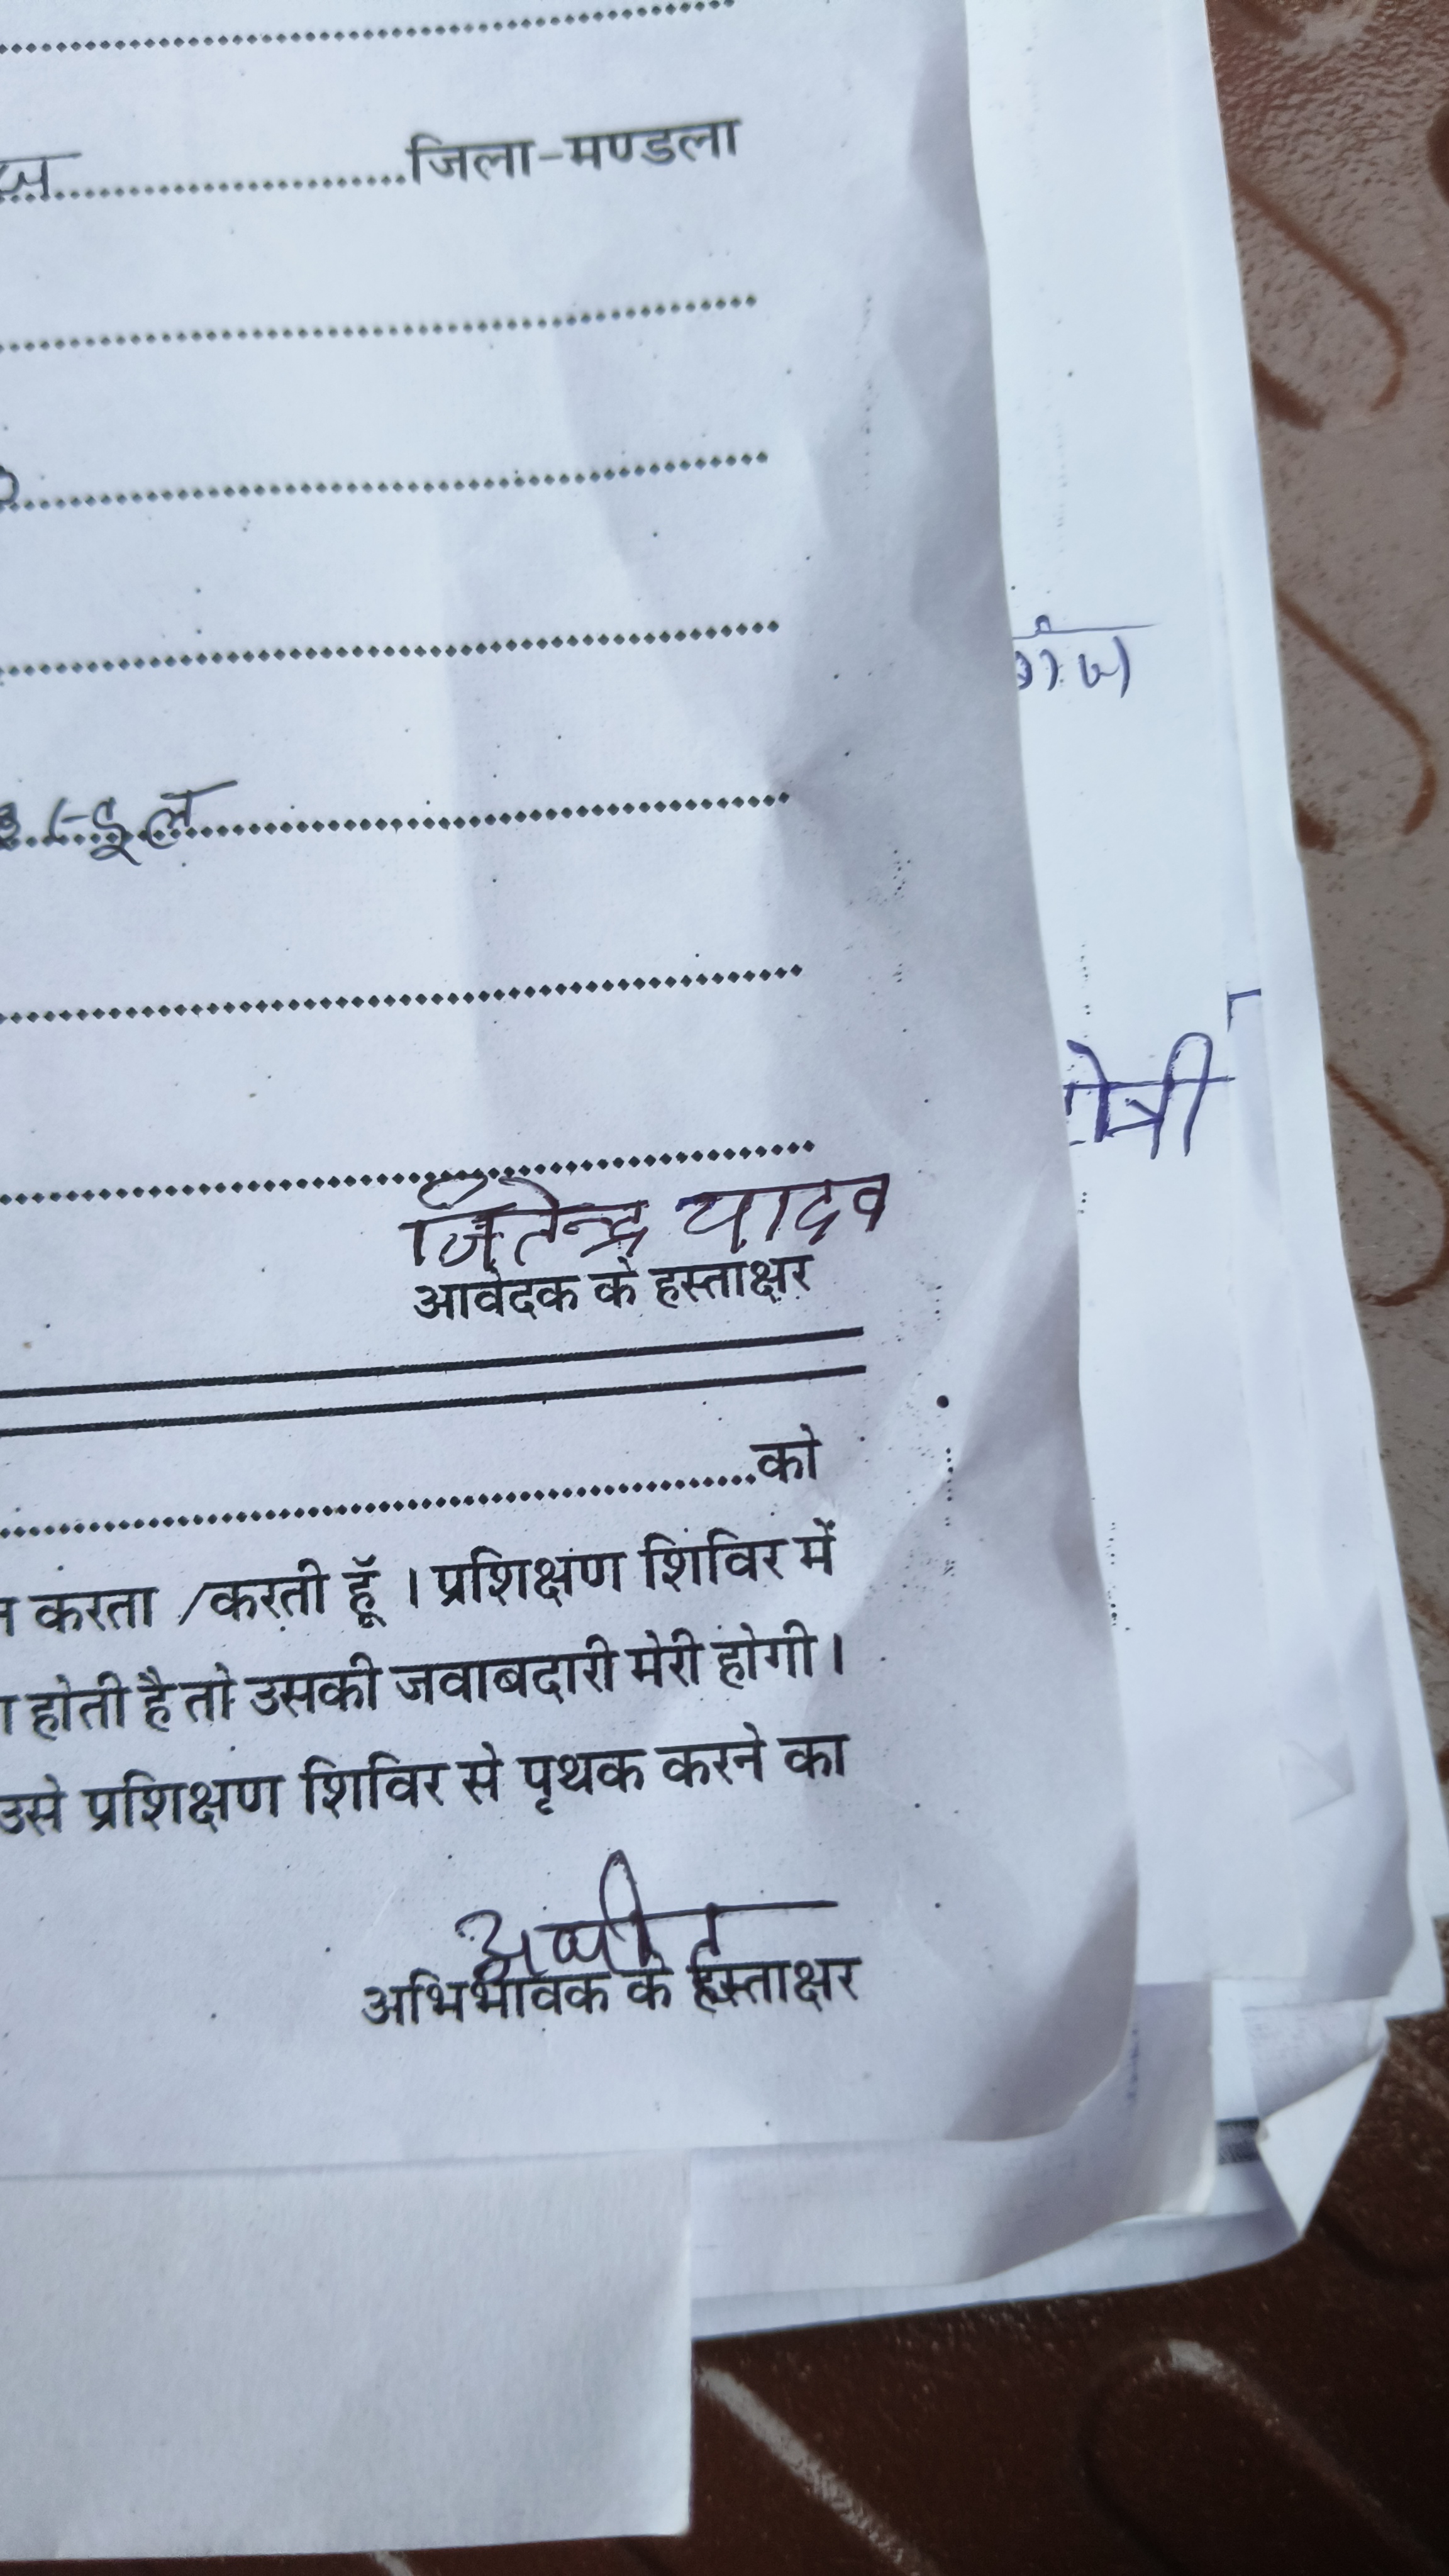 जिला-मण्डला
जितेन्द्र यादव
आवेदक के हस्ताक्षर
को
करता /करती हूँ । प्रशिक्षण शिविर में
होती है तो उसकी जवाबदारी मेरी होगी ।
उसे प्रशिक्षण शिविर से पृथक करने का
अभिभावक के हस्ताक्षर